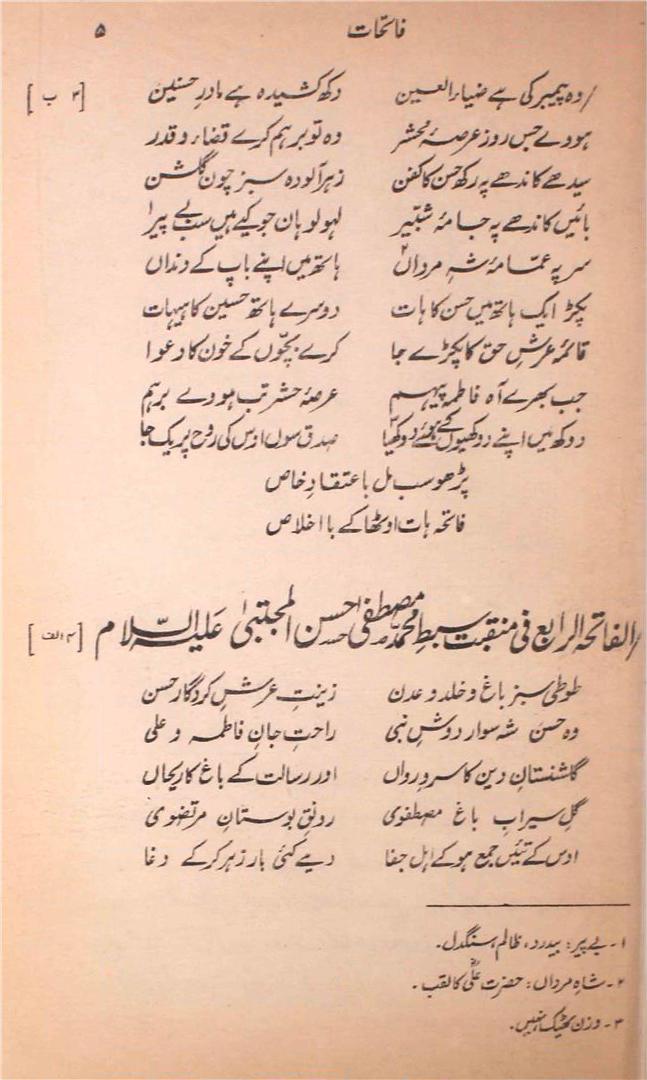 فاتحات ۵
/ وہ پیمبر کی ہے ضیاء العین دکھ کشیدہ ہے مادرِ حسنین [۳ ب]
ہووے جس روز عرصۂ محشر وہ تو برہم کرے قضاء و قدر
سیدھے کاندھے پہ رکھ حسن کا کفن زہر آلودہ سبز چون گلشن
بائیں کاندھے پہ جامۂ شبّیر لہو لوہان جو کیے ہیں سب بے پیر۱
سر پہ عمّامۂ شہِ مرداں۲ ہاتھ میں اپنے باپ کے دنداں
پکڑ ایک ہاتھ میں حسن کا ہات دوسرے ہاتھ حسین کا ہیہات
قائمۂ عرشِ حق کا پکڑے جا کرے بچّوں کے خون کا دعوا
جب بھرے آہ فاطمہ پیہم عرصۂ حشر تب ہووے برہم
دوکھ میں اپنے دوکھیوں کے دوکھیا۳ صدق سوں اوس کی روح پر یک جا
پڑھو سب مل با عتقادِ خاص
فاتحہ ہات اوٹھا کے با اخلاص
/ الفاتحہ الرابع فی منقبت سبطِ محمّد مصطفٰی احمد حسن المجتبیٰ علیہ السّلام [۴ الف]
طوطی سبز باغ و خلد و عدن زینتِ عرشِ کردگار حسن
وہ حسن شہ سوار دوشِ نبی راحتِ جانِ فاطمہ و علی
گلشنستانِ دین کا سرو رواں اور رسالت کے باغ کا ریحاں
گلِ سیرابِ باغ مصطفوی رونقِ بوستانِ مرتضوی
اوس کے تئیں جمع ہو کے اہل جفا دیے کئی بار زہر کر کے دغا
۱ ۔ بے پیر: بیدرد، ظالم، سنگدل۔
۲ ۔ شاہِ مرداں: حضرت علیؓ کا لقب۔
۳ ۔ وزن ٹھیک نہیں۔